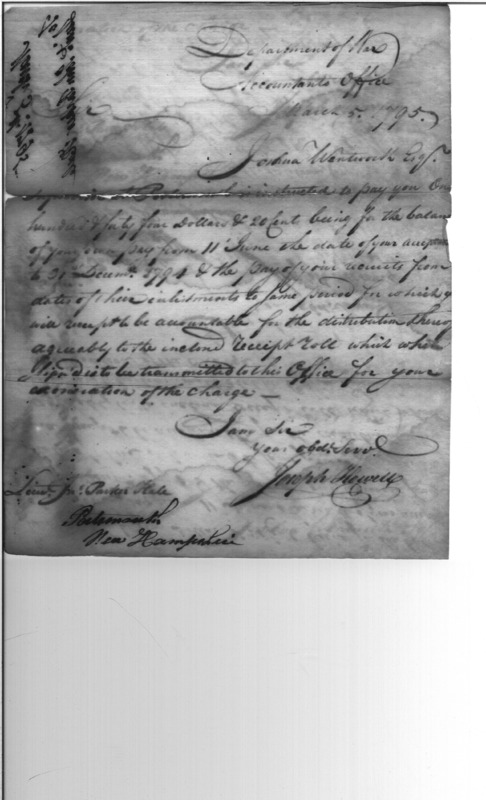 Department of War
Accountants Office
March 5. 1795.
Sir
Joshua Wentworth Esqr.
at Portsmouth is instructed to pay you One
hundred & forty four Dollars & 20 Cent being for the balan
of your pay from 11 June the date of your accepta
to 31 Decemr. 1794 & the pay of your recruits from
dates of their enlistments to same period for which y
will receipt & be accountable for the distribution thereo
agreeably to the inclosed receipt roll which when
signed is to be transmitted to this Office for your
exoneration of the charge —
I am Sir
your obdt. Servt.
Joseph Howell
Lieut. Jno. Parker Hale
Portsmouth
New Hampshire